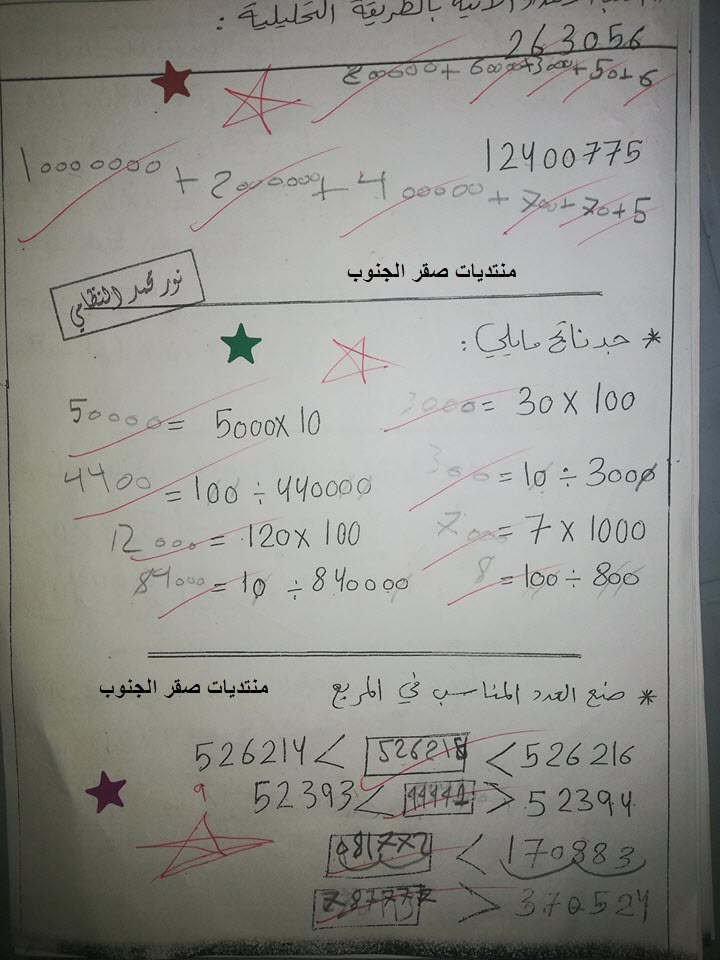 الآتية بالطريقة التحليلية :
263056
200000 + 60000 + 3000 + 50 + 6
12400775
10000000 + 2000000 + 400000 + 700 + 70 + 5
منتديات صقر الجنوب
نور محمد النظامي
* جد ناتج مايلي :
3000 = 30 x 100
50000 = 5000 x 10
300 = 10 ÷ 3000
4400 = 100 ÷ 440000
7000 = 7 x 1000
12000 = 120 x 100
8 = 100 ÷ 800
84000 = 10 ÷ 840000
منتديات صقر الجنوب
* ضع العدد المناسب في المربع
526214 < 526215 < 526216
52393 < 44441 > 52394
981772 < 170883
787777 > 370524
9